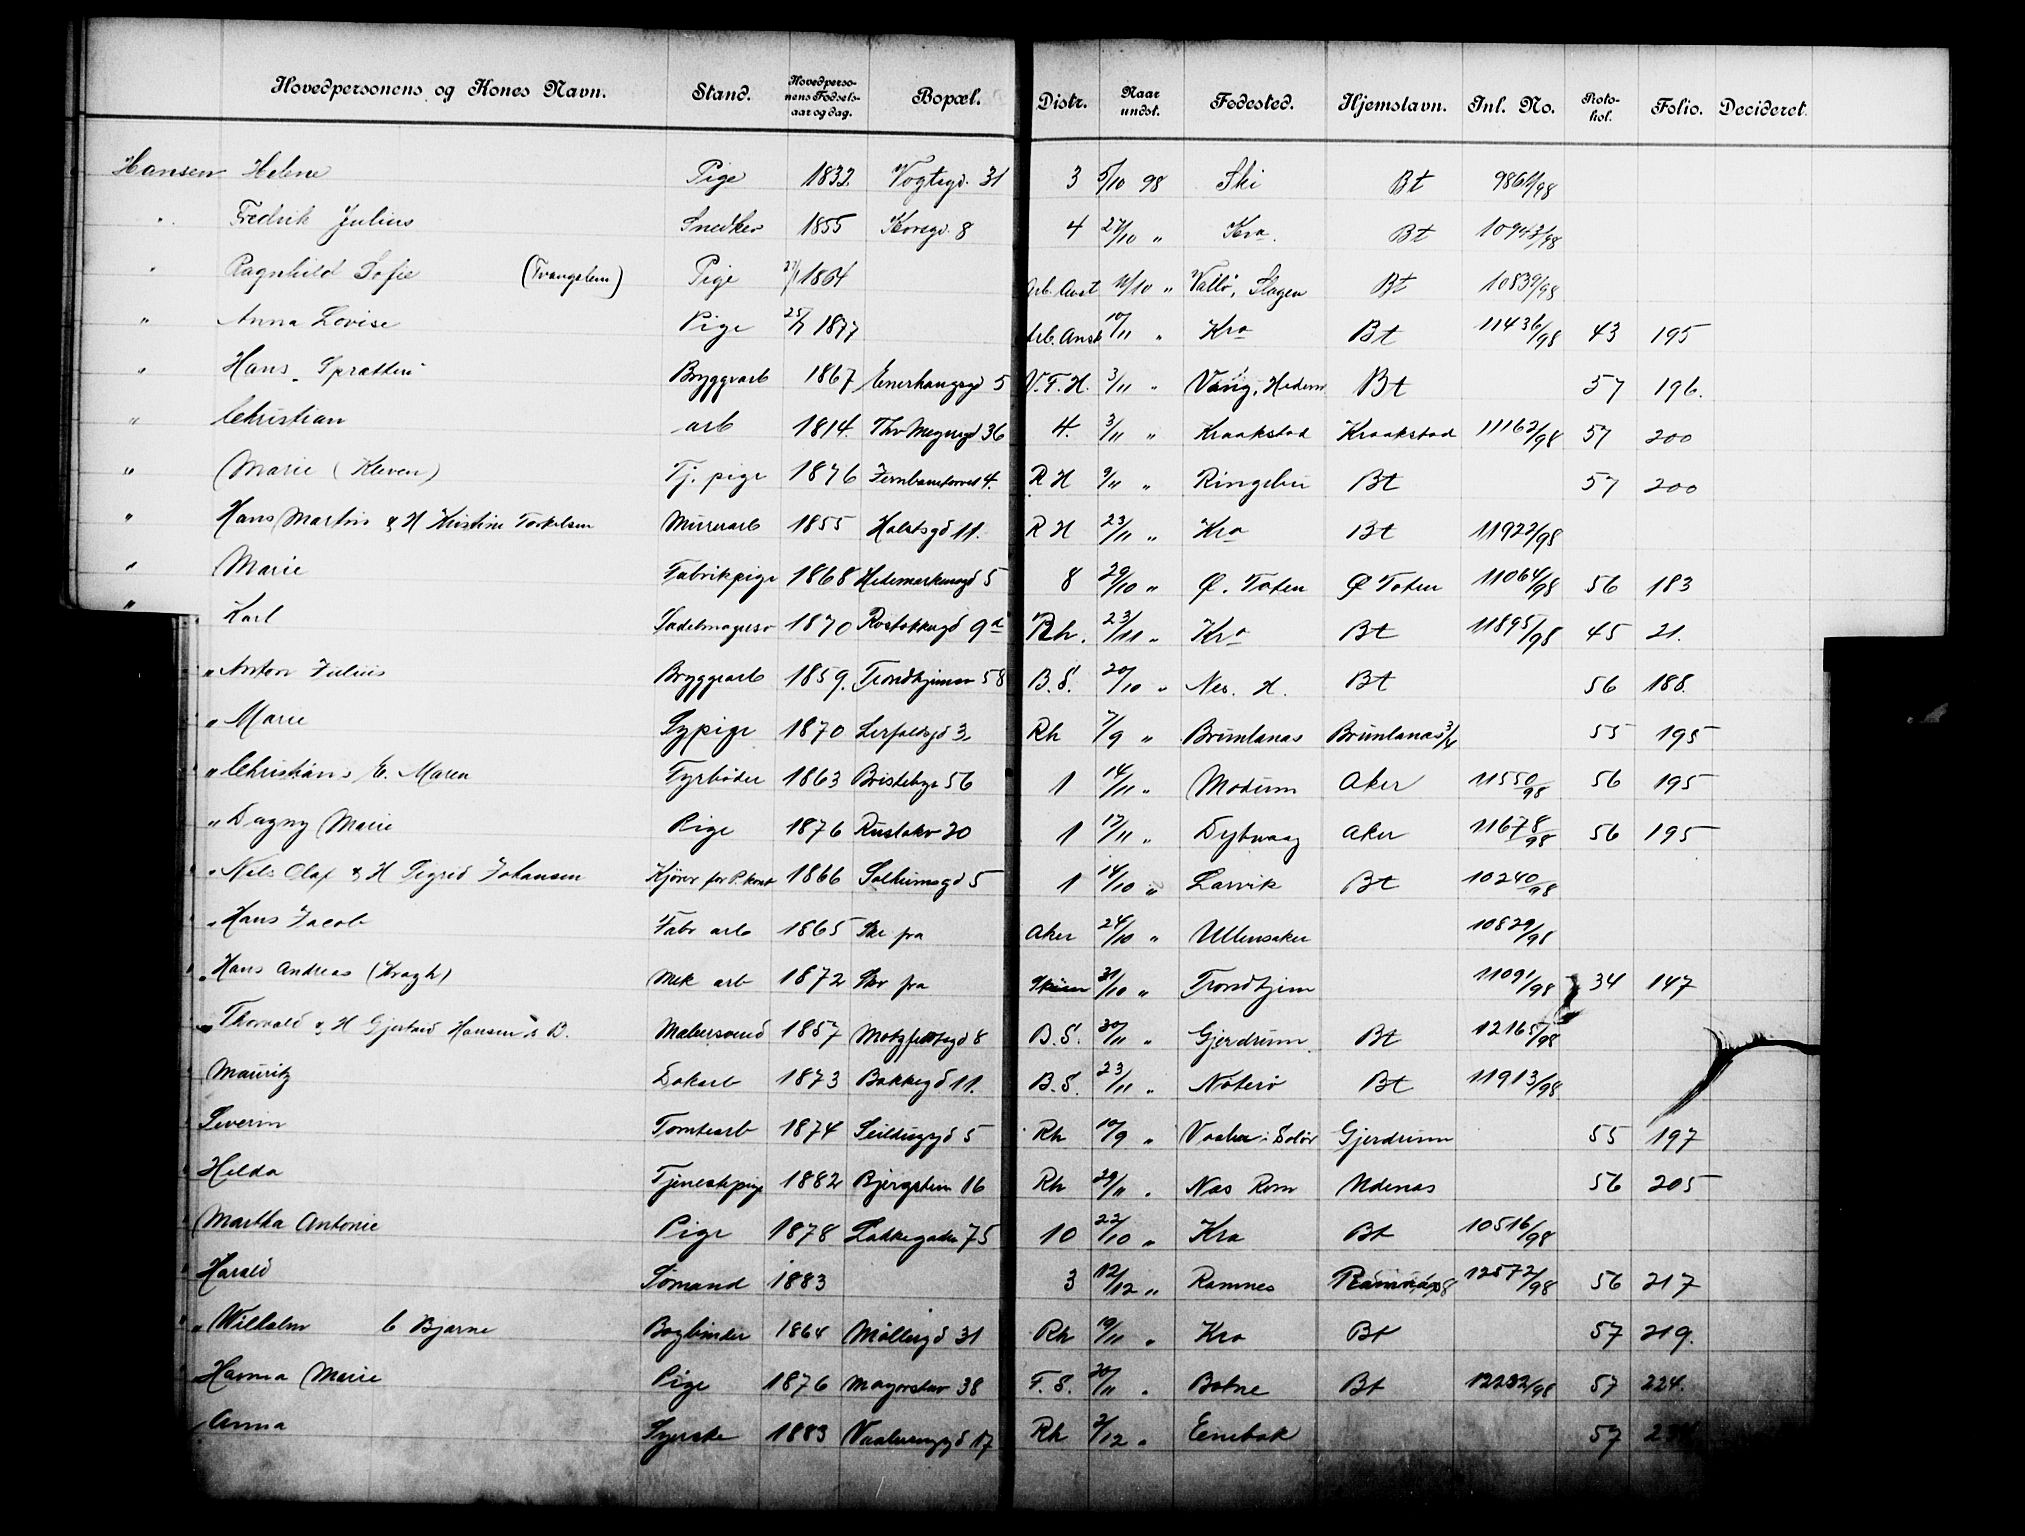 Hovedpersonens og Kones Navn. Stand. Hovedpersonens Fødselsaar og dag. Bopæl. Distr. Naar undst. Fødested. Hjemstavn. Inl. No. Protokol. Folio. Decideret.
Hansen Helene Pige 1832 Vogtsgd. 31 3 5/10 98 Ski Bt /98
" Fredrik Julius Snedker 1855 Korsgd. 8 4 27/10 " Kra. Bt 10943/98
" Ragnhild Sofie (Tvangslem) Pige 1864 Arb. Anst /10 " Vallø, Slagen Bt 10839/98
" Anna Lovise Pige 25/7 1877 Arb. Anst 10/11 " Kra Bt 11436/98 43 195
" Hans Bryggearb 1867 Enerhaugsgd 5 V.F.H. 3/11 " Vang, Hedem. Bt 57 196.
" Christian arb 1814. Thv Meyersgd 36 4. 3/11 " Kraakstad Kraakstad 11162/98 57 200
" Marie (Kleven) Tj. pige 1876 Jernbanetorvet 4. R H 9/11 " Ringebu Bt 57 200
" Hans Martin & H Kristine Torkelsen Murerarb 1855 Holstsgd 11. R H 23/11 " Kra Bt 11922/98
" Marie Fabrikpige 1868 Hedemarkensgd 5 8 29/10 " Ø. Toten Ø Toten 11064/98 56 183
" Karl Sadelmagersv 1870 Rostokkergd 9a Rh. 23/11 " Kra Bt 11895/98 45 21.
" Anton Julius Bryggearb 1859. Trondhjemsv 58 B.S. 20/10 " Nes. H. Bt 56 188.
" Marie Sypige 1870 Lerfaldsgd 3 Rh 7/9 " Brunlanæs Brunlanæs 55 195
" Christian & E. Maren Fyrbøder 1863 56 1 14/11 " Modum Aker 11550/98 56 195
" Dagny Marie Pige 1876 Ruseløkv 20 1 17/11 " Dybvaag Aker 11678/98 56 195
" Nils Olaf & H Sigrid Johansen Kjører for P. kont 1866 Solheimsgd 5 1 14/10 " Larvik Bt 10240/98
" Hans Jacob Fabr arb 1865 Skr fra Aker 24/10 " Ullensaker 10829/98
" Hans Andreas (Kragh) Mek arb 1872 Skr fra Skien 31/10 " Trondhjem 11091/98 34 147
" Thorvald & H Gjertrud Hansen & B. Malersvend 1857 Motzfeldtsgd 8 B.S. 30/11 " Gjerdrum Bt 12165/98
" Mauritz Dokarb 1873 Bakkegd 11. B.S. 23/11 " Nøterø Bt 11913/98
" Severin Tomtearb 1874 Seildugsgd 5 Rh 10/9 " Vaaler i Solør Gjerdrum 55 197
" Hilda Tjenestepige 1882 Bjergstien 16 Rh 29/11 " Nas Rom Udenas 56 205
" Martha Antonie Pige 1878 Lakkegaden 75 10 22/10 " Kra Bt 10516/98
" Harald Sømand 1883 3 12/12 " Ramnes Ramnæs 12572/98 56 217
" Wilhelm & Bjarne Bogbinder 1864 Møllergd 31 Rh 19/11 " Kra Bt 57 219.
" Hanna Marie Pige 1876 Majorstuv 38 F.S. 30/11 " Botne Bt 12232/98 57 224.
" Anna Syerske 1883 Vaalerenggd 17 Rh 2/12 " Enebak 57